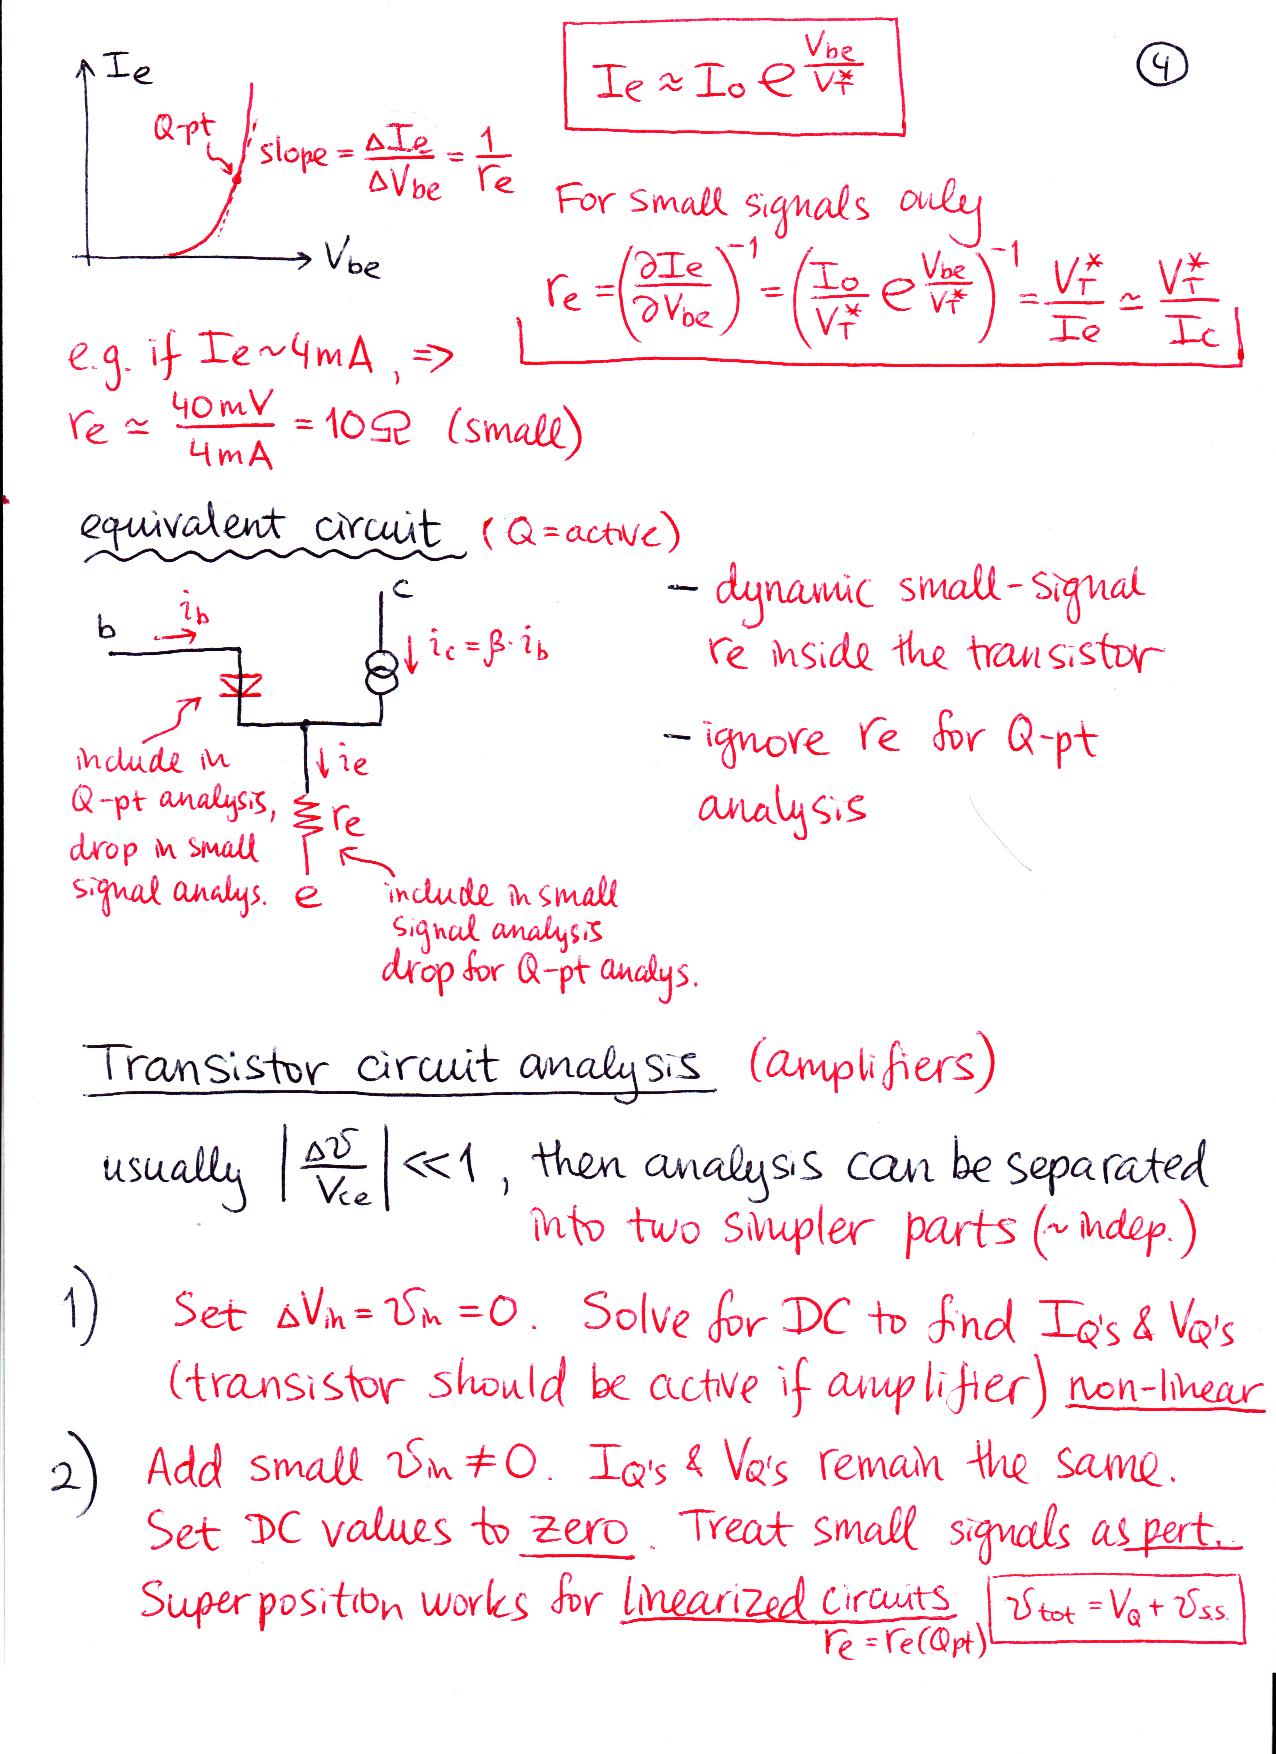 ④
Ie
Ie ≈ Io e^(Vbe/VT*)
Q-pt
slope = ΔIe/ΔVbe = 1/re
Vbe
For small signals only
re = (∂Ie/∂Vbe)^-1 = (Io/VT* e^(Vbe/VT*))^-1 = VT*/Ie ≃ VT*/Ic
e.g. if Ie ~ 4mA, ⇒
re ≃ 40mV/4mA = 10Ω (small)
equivalent circuit (Q = active)
c
b
ib
ic = β · ib
include in
Q-pt analysis,
drop in small
signal analys.
ie
re
e
include in small
signal analysis
drop for Q-pt analys.
– dynamic small-signal
re inside the transistor
– ignore re for Q-pt
analysis
Transistor circuit analysis (amplifiers)
usually |Δv/Vce| ≪ 1, then analysis can be separated
into two simpler parts (~ indep.)
1) Set ΔVin = vin = 0. Solve for DC to find IQ's & VQ's
(transistor should be active if amplifier) non-linear
2) Add small vin ≠ 0. IQ's & VQ's remain the same.
Set DC values to zero. Treat small signals as pert.
Superposition works for linearized circuits
re = re(Qpt)
vtot = VQ + vs.s.